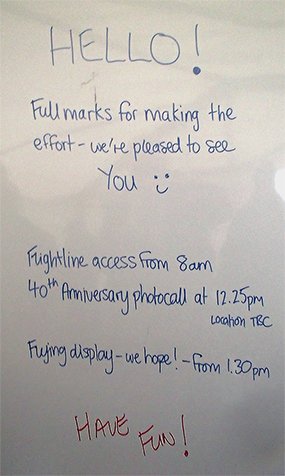 HELLO!
Full marks for making the
effort - we're pleased to see
You :)
Flightline access from 8am
40th Anniversary photocall at 12.25pm
Location TBC
Flying display - we hope! - from 1.30pm
HAVE FUN!